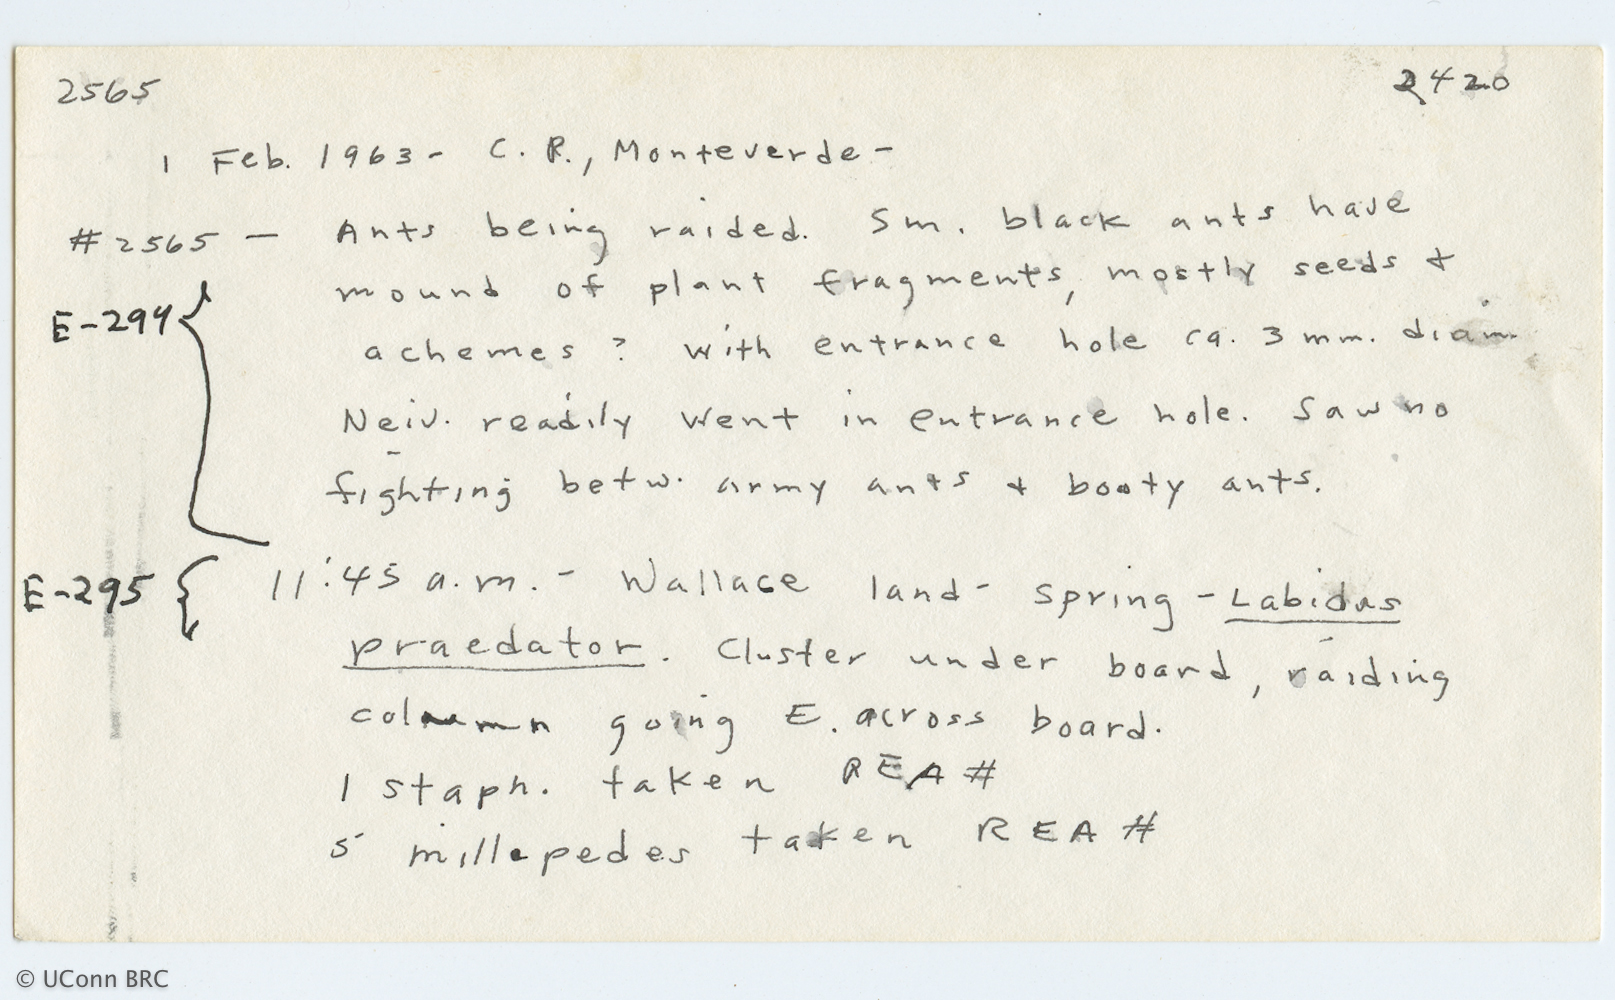 2565 2420
1 Feb. 1963 - C. R., Monteverde -
#2565 - Ants being raided. Sm. black ants have
mound of plant fragments, mostly seeds +
E-294 achemes ? with entrance hole ca. 3 mm. diam.
Neiv. readily went in entrance hole. Saw no
fighting betw. army ants + booty ants.
E-295 11:45 a.m. - Wallace land - spring - Labidus
praedator. Cluster under board, raiding
column going E. across board.
1 staph. taken REA #
5 millepedes taken REA #
© UConn BRC